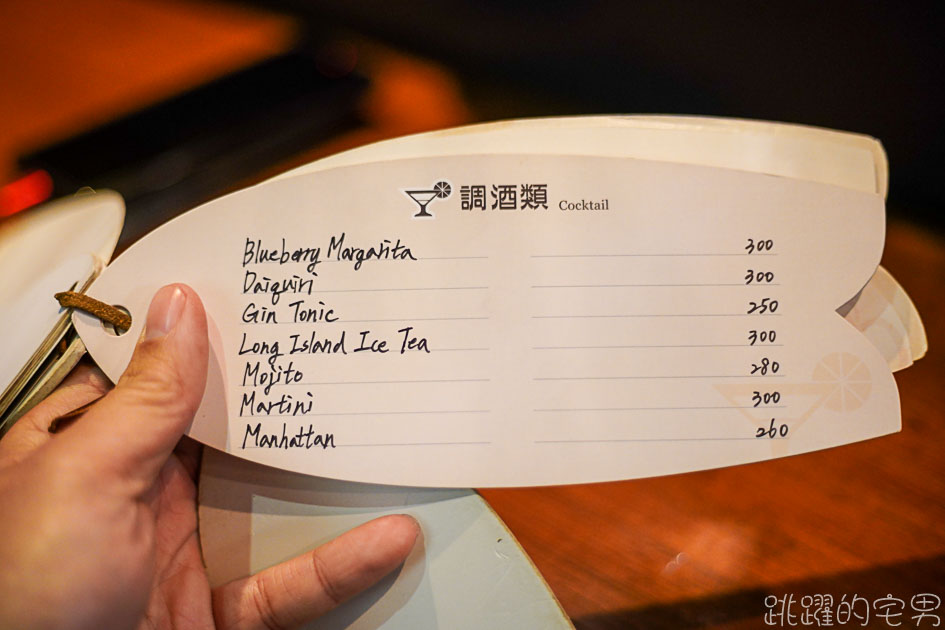 調酒類 Cocktail
Blueberry Margarita 300
Daiquiri 300
Gin Tonic 250
Long Island Ice Tea 300
Mojito 280
Martini 300
Manhattan 260
跳躍的宅男